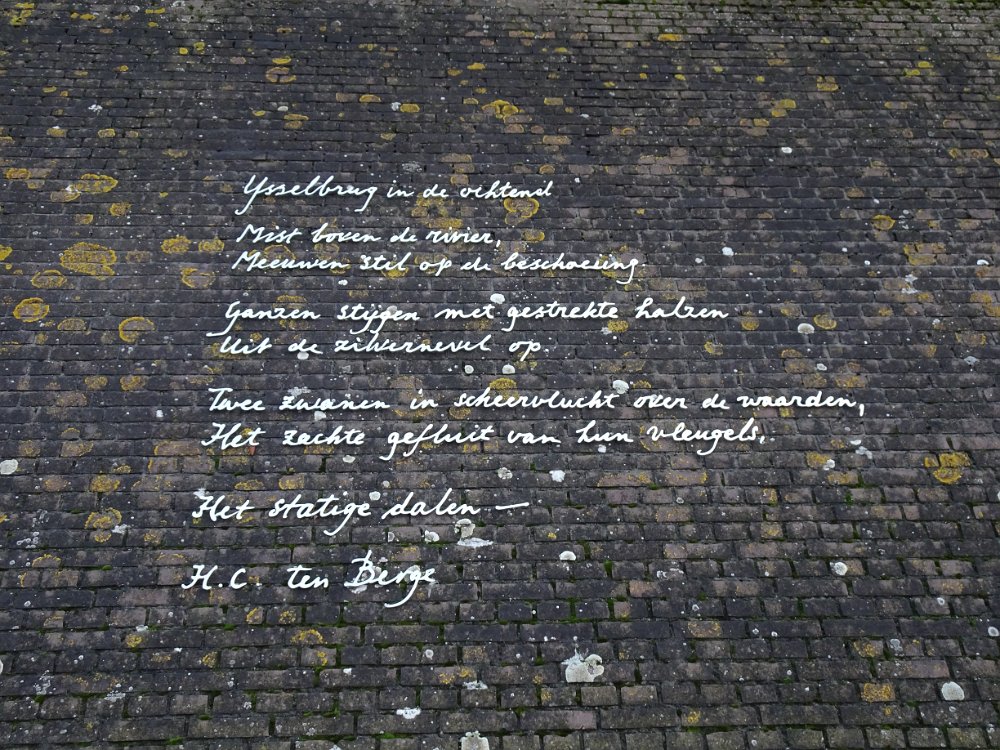 IJsselbrug in de ochtend
Mist boven de rivier,
Meeuwen stil op de beschoeiing.
Ganzen stijgen met gestrekte halzen
Uit de zilvernevel op.
Twee zwanen in scheervlucht over de waarden,
Het zachte gefluit van hun vleugels,
Het statige dalen —
H.C. ten Berge